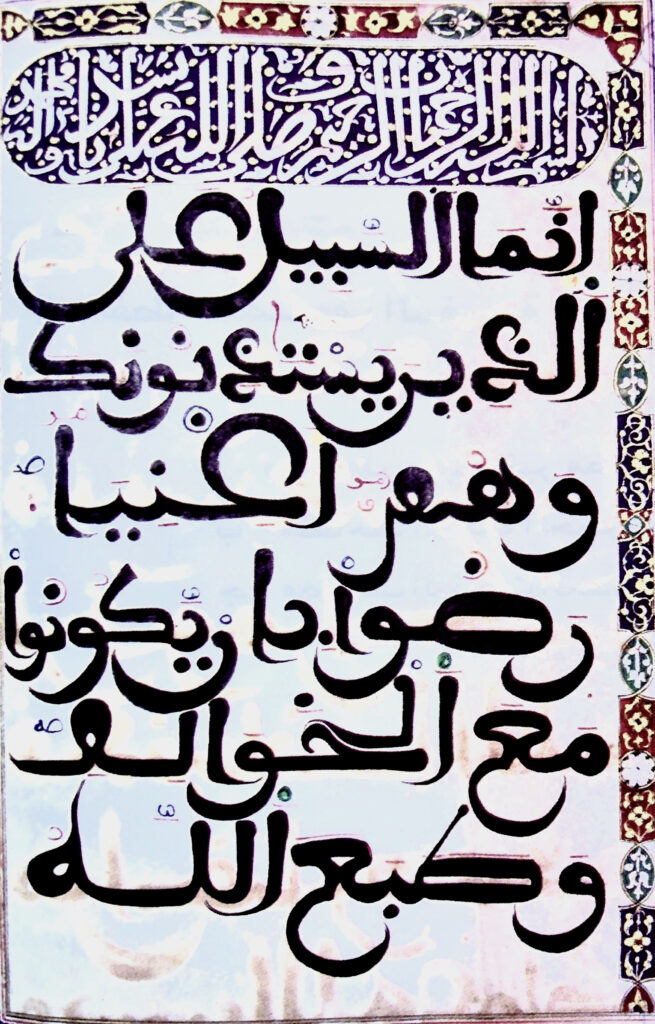 بسم الله الرحمن الرحيم وصلى الله على سيدنا
إنما السبيل على
الذين يستذنونك
وهم اغنياء
رضوا بان يكونوا
مع الخوالف
وطبع الله